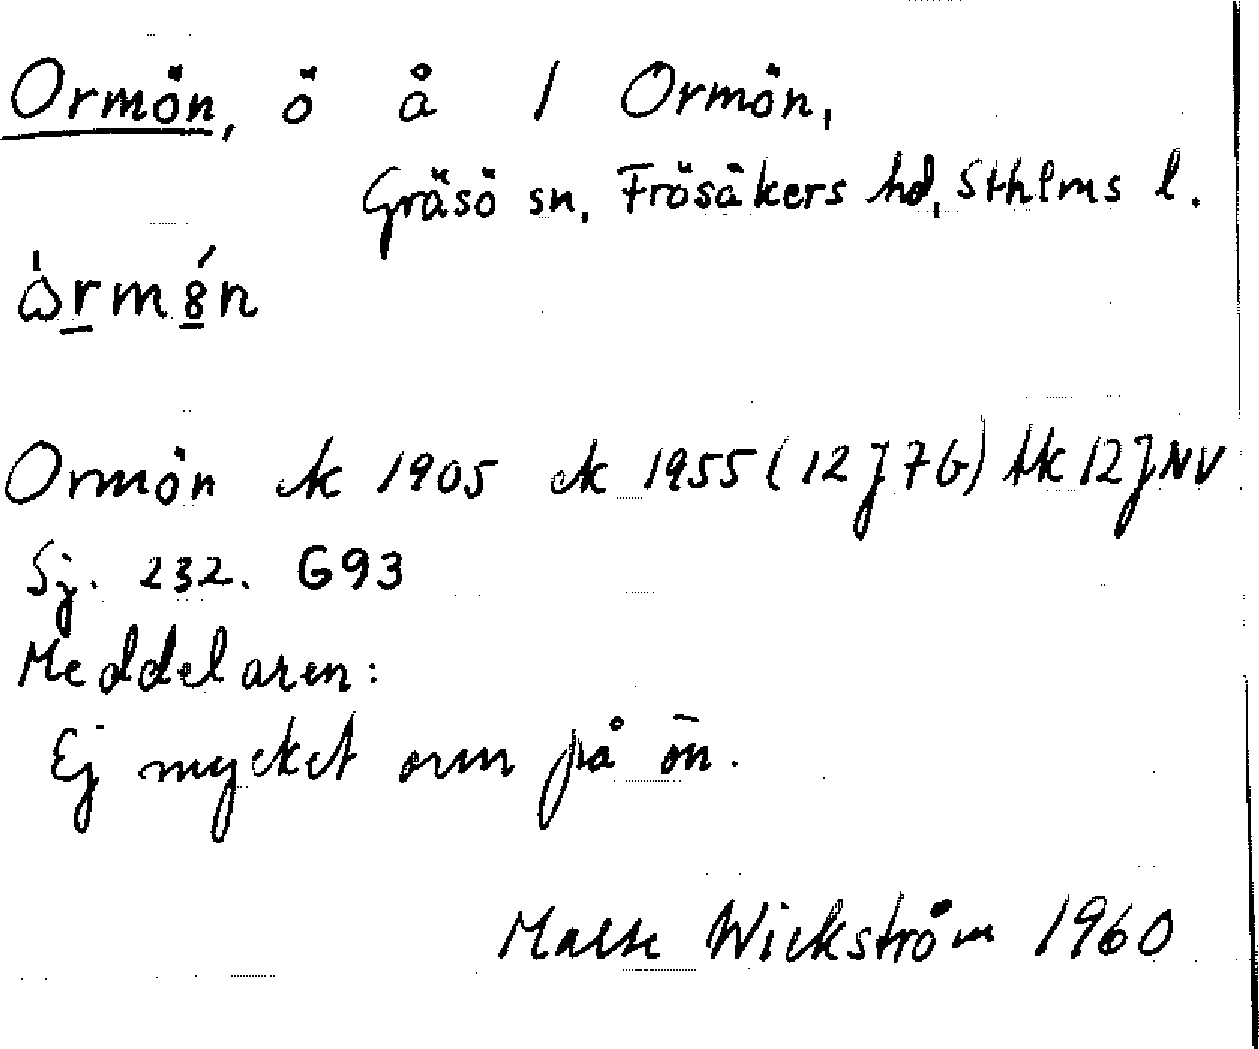 Ormön, ö å 1 Ormön,
Gräsö sn, Frösåkers hd, Sthlms l.
Ormön ek 1905 ek 1955 (12 J 7 G) tk 12 J NV
Sj. 232. G93
Meddelaren:
Ej mycket orm på ön.
Wickström 1960